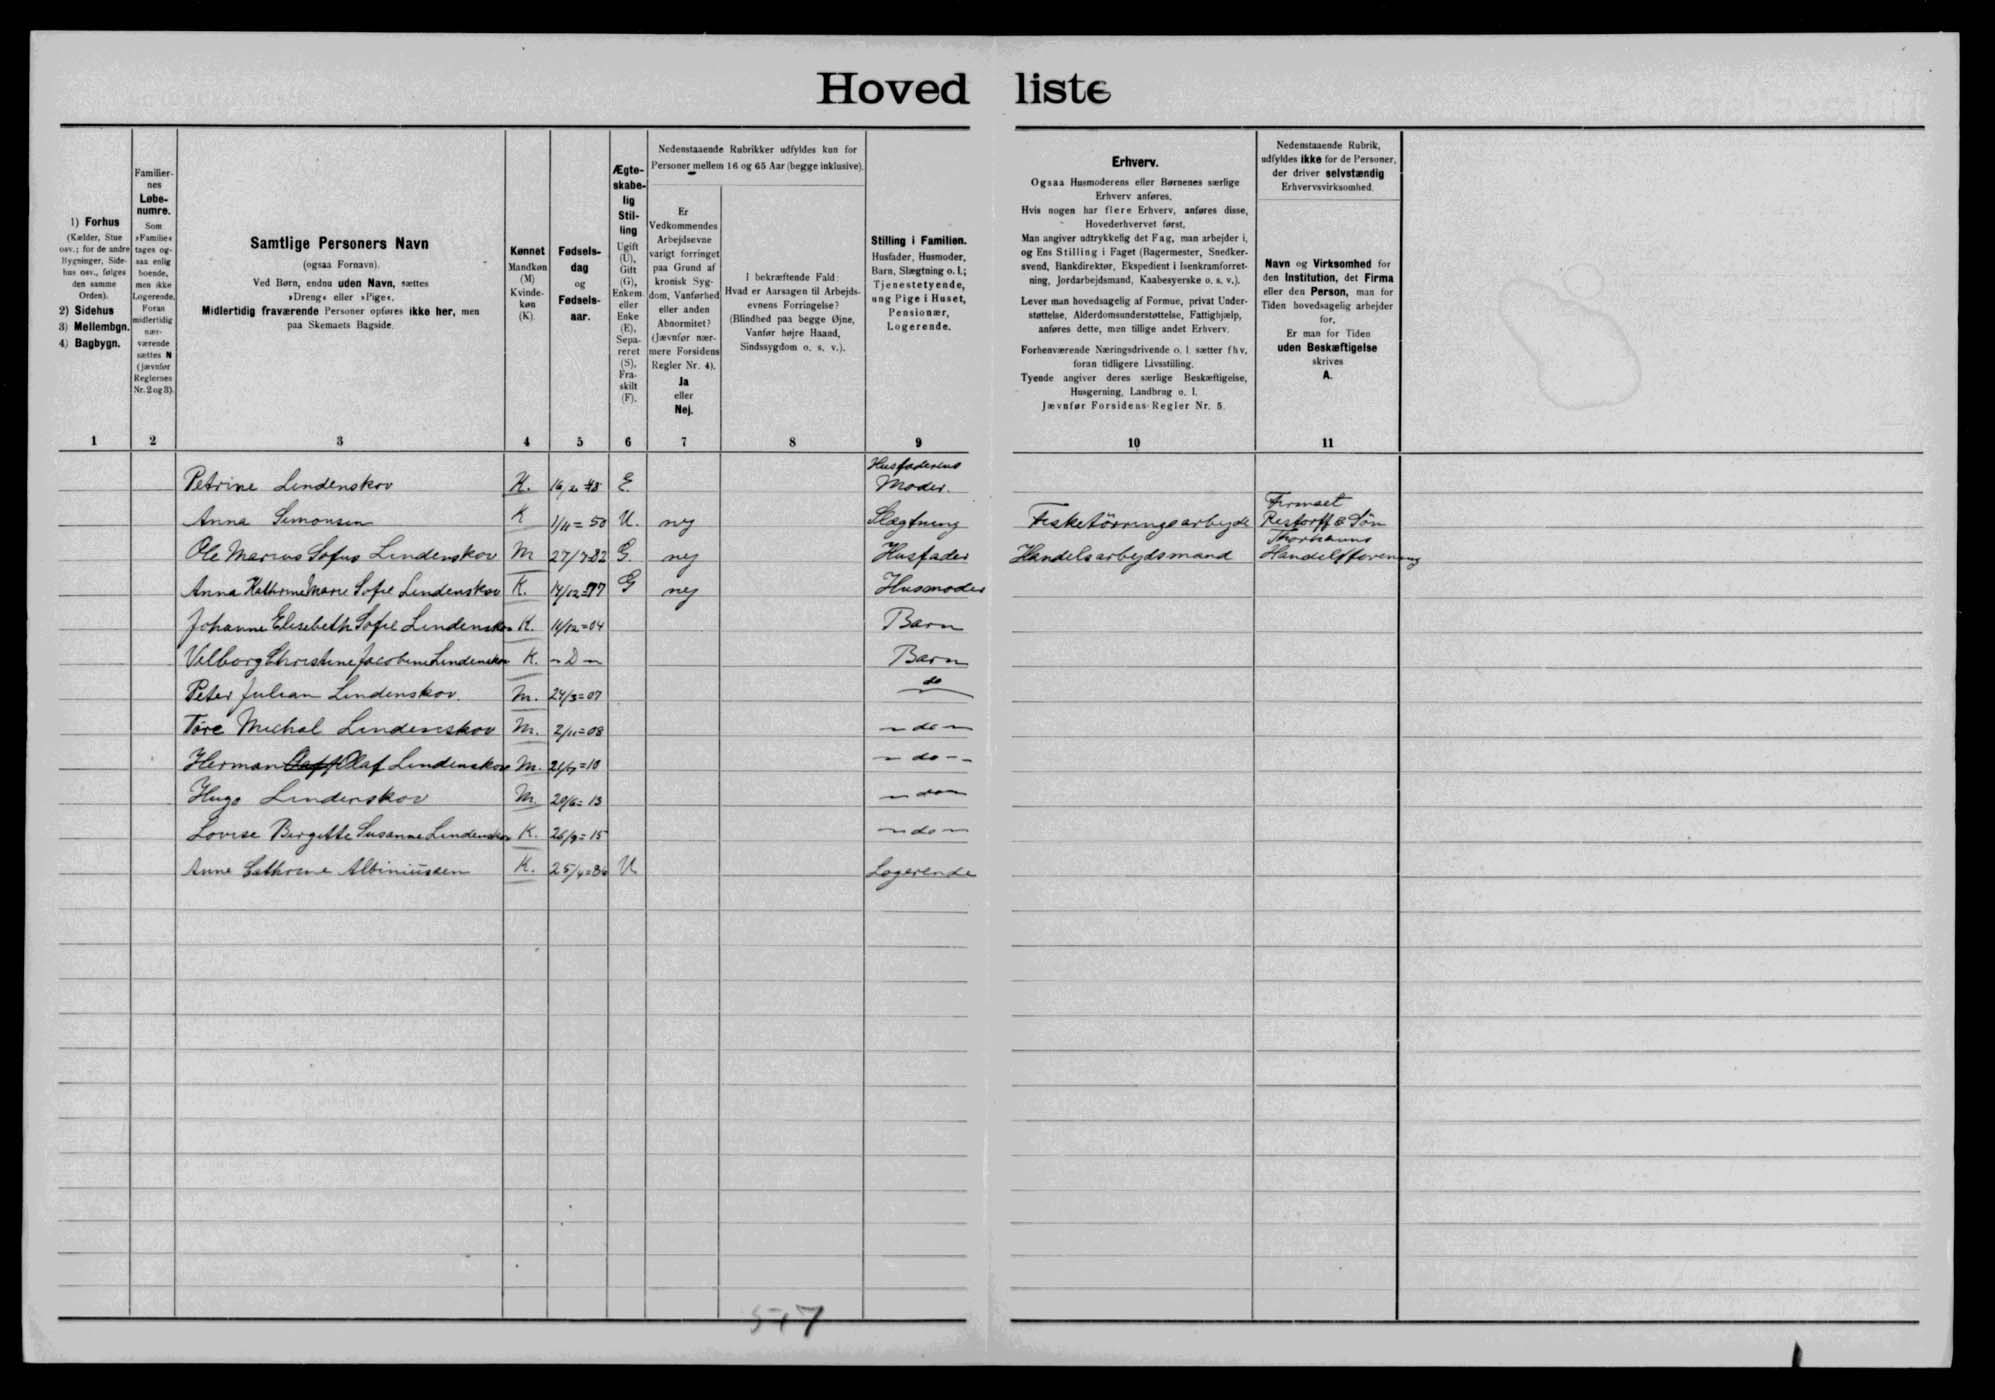 Hovedliste
1) Forhus
(Kælder, Stue
osv.; for de andre
Bygninger, Side-
hus osv., følges
den samme
Orden).
2) Sidehus
3) Mellembgn.
4) Bagbygn.
Familier-
nes
Løbe-
numre.
Som
»Familie«
tages og-
saa enlig
boende,
men ikke
Logerende.
Foran
midlertidig
nær-
værende
sættes N
(jævnfør
Reglernes
Nr. 2 og 3).
Samtlige Personers Navn
(ogsaa Fornavn).
Ved Børn, endnu uden Navn, sættes
»Dreng« eller »Pige«.
Midlertidig fraværende Personer opføres ikke her, men
paa Skemaets Bagside.
Kønnet
Mandkøn
(M)
Kvinde-
køn
(K).
Fødsels-
dag
og
Fødsels-
aar.
Ægte-
skabe-
lig
Stil-
ling
Ugift
(U),
Gift
(G),
Enkem.
eller
Enke
(E),
Sepa-
reret
(S),
Fra-
skilt
(F).
Nedenstaaende Rubrikker udfyldes kun for
Personer mellem 16 og 65 Aar (begge inklusive).
Er
Vedkommendes
Arbejdsevne
varigt forringet
paa Grund af
kronisk Syg-
dom, Vanførhed
eller anden
Abnormitet?
(Jævnfør nær-
mere Forsidens
Regler Nr. 4).
Ja
eller
Nej.
I bekræftende Fald:
Hvad er Aarsagen til Arbejds-
evnens Forringelse?
(Blindhed paa begge Øjne,
Vanfør højre Haand,
Sindssygdom o. s. v.).
Stilling i Familien.
Husfader, Husmoder,
Barn, Slægtning o. l.;
Tjenestetyende,
ung Pige i Huset,
Pensionær,
Logerende.
Erhverv.
Ogsaa Husmoderens eller Børnenes særlige
Erhverv anføres.
Hvis nogen har flere Erhverv, anføres disse,
Hovederhvervet først.
Man angiver udtrykkelig det Fag, man arbejder i,
og Ens Stilling i Faget (Bagermester, Snedker-
svend, Bankdirektør, Ekspedient i Isenkramforret-
ning, Jordarbejdsmand, Kaabesyerske o. s. v.).
Lever man hovedsagelig af Formue, privat Under-
støttelse, Alderdomsunderstøttelse, Fattighjælp,
anføres dette, men tillige andet Erhverv.
Forhenværende Næringsdrivende o. l. sætter fhv.
foran tidligere Livsstilling.
Tyende angiver deres særlige Beskæftigelse,
Husgerning, Landbrug o. l.
Jævnfør Forsidens Regler Nr. 5.
Nedenstaaende Rubrik,
udfyldes ikke for de Personer,
der driver selvstændig
Erhvervsvirksomhed.
Navn og Virksomhed for
den Institution, det Firma
eller den Person, man for
Tiden hovedsagelig arbejder
for.
Er man for Tiden
uden Beskæftigelse
skrives
A.
1 2 3 4 5 6 7 8 9 10 11
Petrine Lindenskov K. E. Husfaderens Moder.
Anna Simonsen K 1/11=50 U. nej Slægtning Fisketörringsarbejde Firmaet Restorff & Sön
Ole Marius Sofus Lindenskov M 27/7-82 G. nej Husfader Handelsarbejdsmand Thorhavns Handelsforening
Anna Kathrine Marie Sofie Lindenskov K. 14/12=77 G nej Husmoder
Johanne Elisebeth Sofie Lindenskov K. 14/12=04 Barn
Vilborg Christine Jacobine Lindenskov K. - D - Barn
Peter Julian Lindenskov. M. 24/3=07 do
Tóre Michal Lindenskov M. 2/11=08 - do -
Herman Olaf Lindenskov M. 21/7=10 - do -
Hugo Lindenskov M. 20/6=13 - do -
Lovise Birgitte Susanne Lindenskov K. 26/9=15 - do -
Anne Cathrine Albiniussen K. 25/4=86 U Logerende